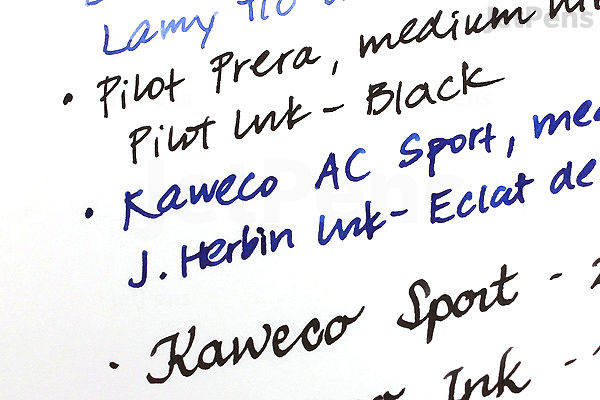 Lamy
• Pilot Prera, medium
Pilot Ink - Black
• Kaweco AC Sport,
J. Herbin Ink - Eclat de
• Kaweco Sport -
Ink -
JetPens